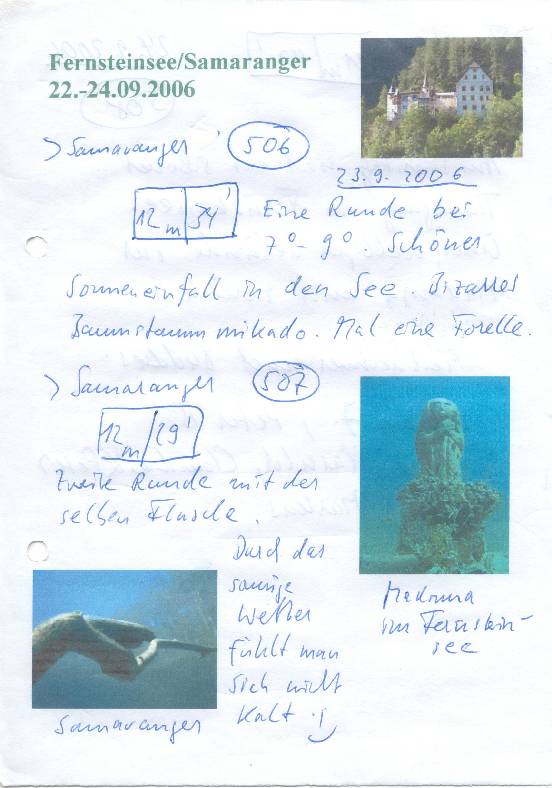 Fernsteinsee/Samaranger
22.-24.09.2006
> Samaranger
506
23.9.2006
12m 34'
Eine Runde bei
7°-9°. Schöner
Sonneneinfall in den See. Bizarres
Baumstammmikado. Mal eine Forelle.
> Samaranger
507
12m 29'
Zweite Runde mit der
selben Flasche.
Durch das
sonnige
Wetter
fühlt man
sich nicht
kalt :)
Madonna
im Fernstein-
see
Samaranger